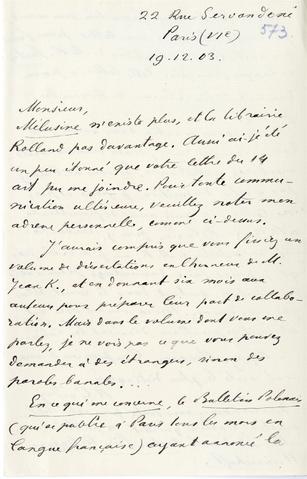 22 Rue Servandoni
Paris (VIe)
573.
19.12.03.
Monsieur,
Mélusine n'existe plus, et la librairie
Rolland pas davantage. Aussi ai-je été
un peu étonné que votre lettre du 14
ait pu me joindre. Pour toute commu-
nication ultérieure, veuillez noter mon
adresse personnelle, comme ci-dessus.
J'aurais compris que vous fissiez un
volume de dissertations en l'honneur de M.
Jean K., et en donnant six mois aux
auteurs pour préparer leur part de collabo-
ration. Mais dans le volume dont vous me
parlez, je ne vois pas ce que vous pouvez
demander à des étrangers, sinon des
paroles banales....
En ce qui me concerne, le Bulletin Polonais
(qui se publie à Paris tous les mois en
langue française) ayant annoncé le